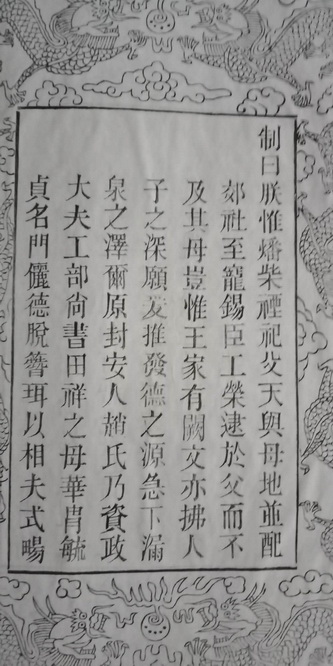 制曰朕惟燔柴禋祀父天與母地並配
郊社至寵錫臣工榮逮於父而不
及其母豈惟王家有闕文亦拂人
子之深願爰推發德之源急下漏
泉之澤爾原封安人趙氏乃資政
大夫工部尚書田祥之母華胄毓
貞名門儷德脫簪珥以相夫式暢